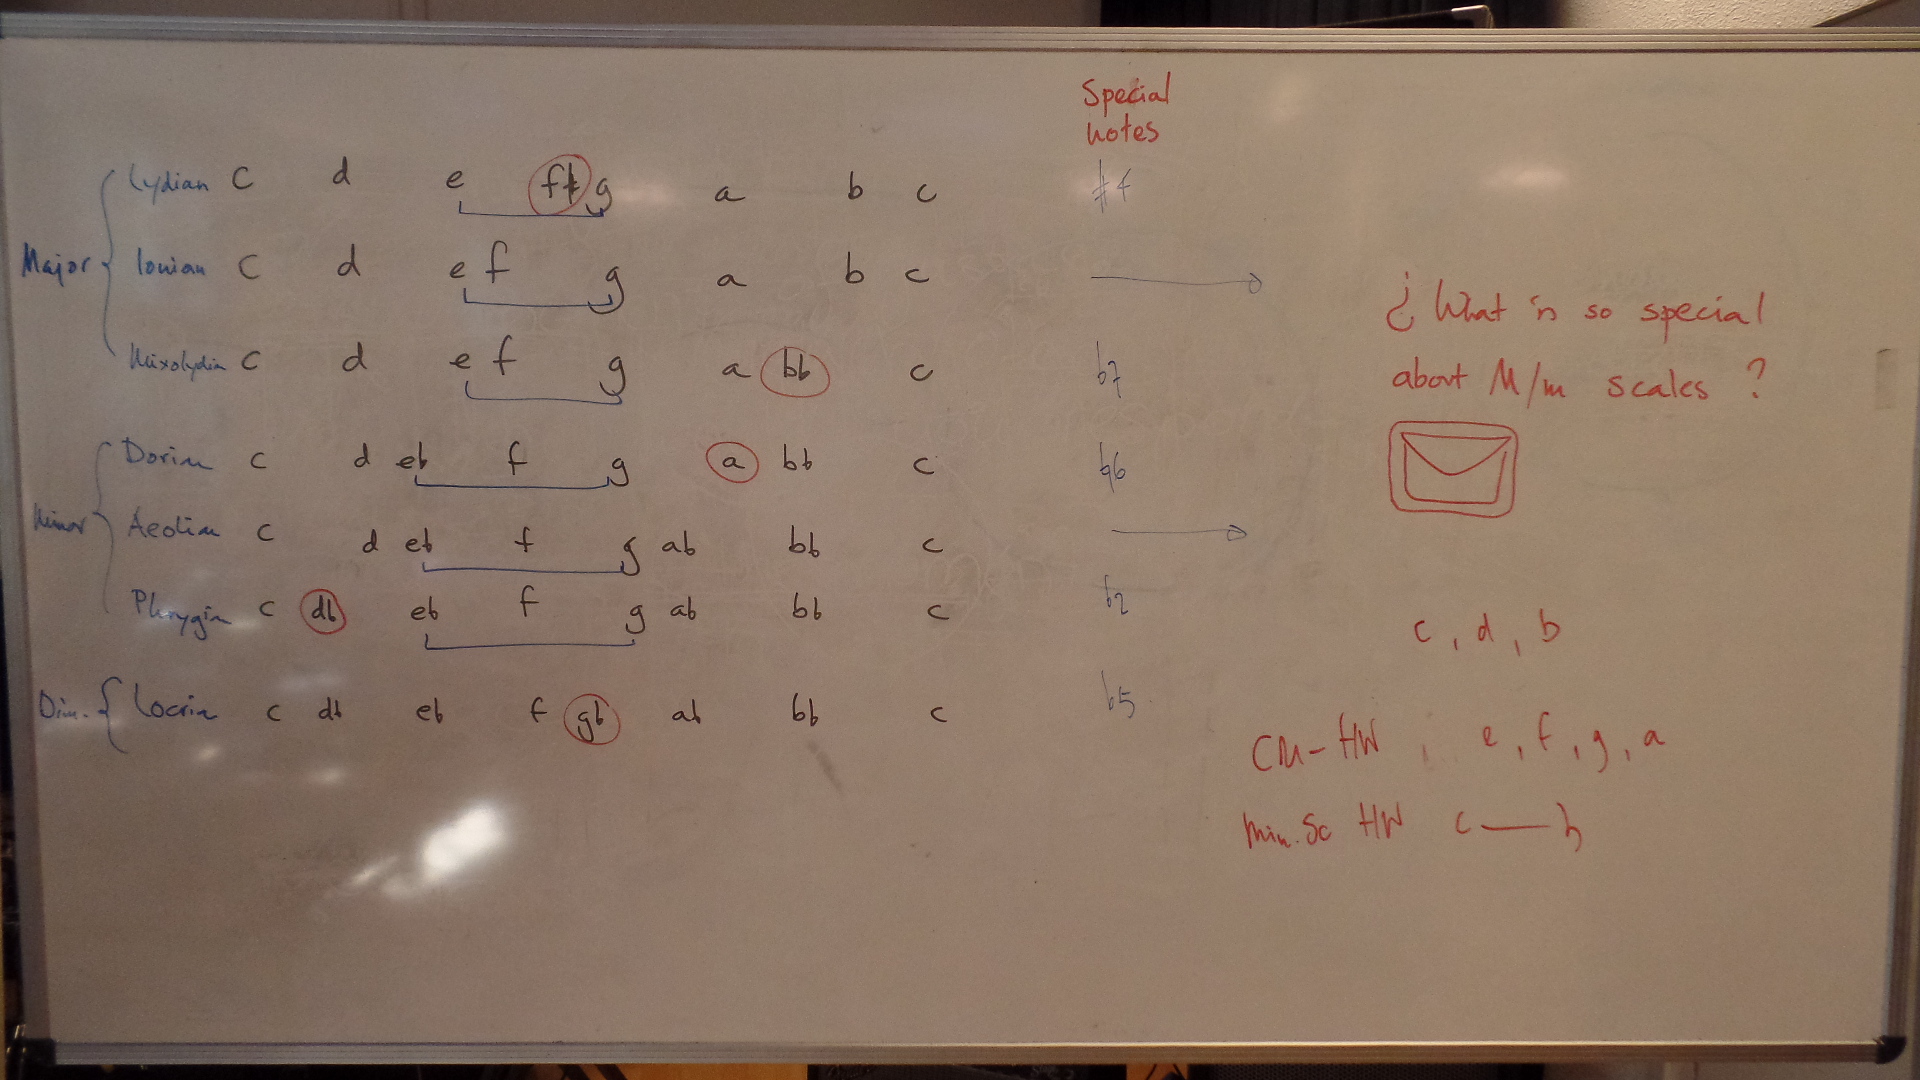 Special
notes
Major
Lydian c d e f# g a b c #4
Ionian c d e f g a b c
Mixolydian c d e f g a bb c b7
Minor
Dorian c d eb f g a bb c ♮6
Aeolian c d eb f g ab bb c
Phrygian c db eb f g ab bb c b2
Dim. Locrian c db eb f gb ab bb c b5
¿ What is so special
about M/m scales ?
c, d, b
CM - HW , e, f, g, a
Min. Sc HW c — b